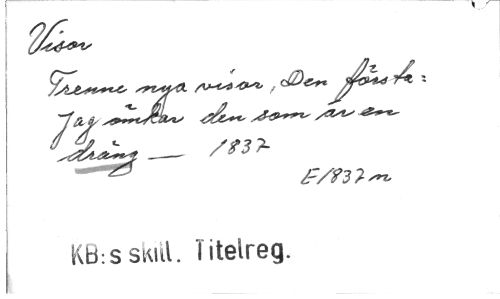 Visor
Trenne nya visor, Den första:
Jag ömkar den som är en
dräng — 1837
E1837n
KB:s skill. Titelreg.